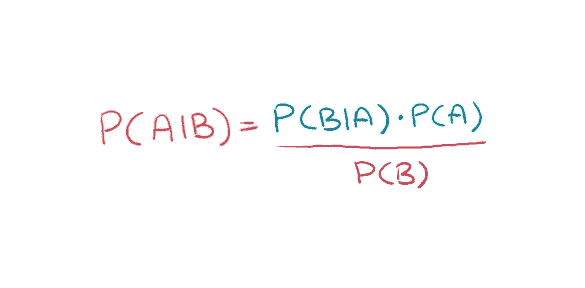 P(A|B) = P(B|A) · P(A)
P(B)